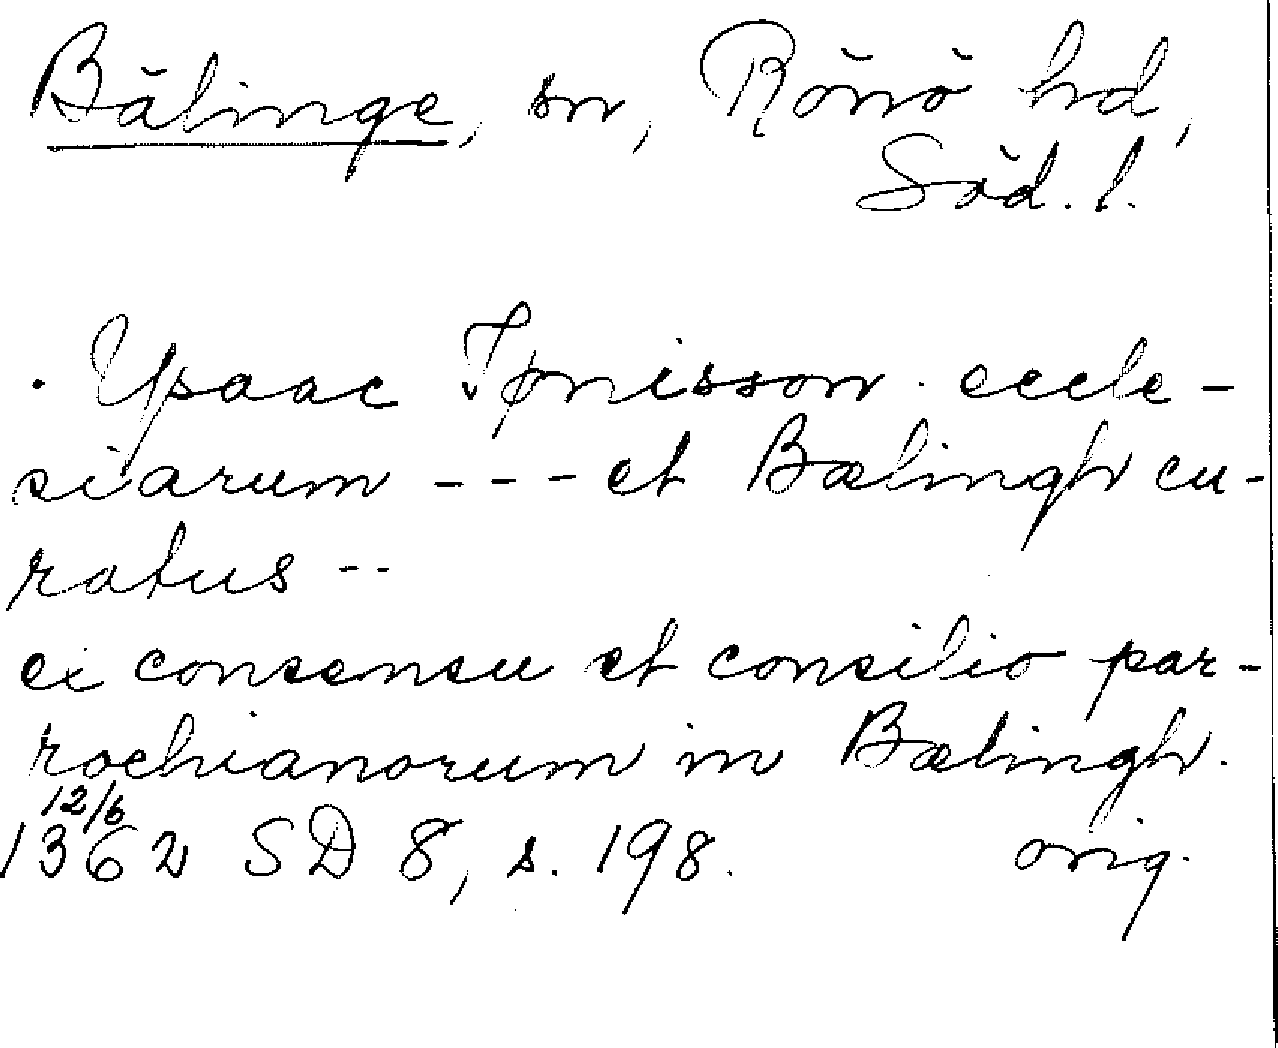 Bälinge, sn, Rönö hd,
Söd. l.
. Ysaac Tønisson eccle-
siarum --- et Bælingh cu-
ratus --
ex consensu et consilio par-
rochianorum in Bælingh.
12/6
1362 SD 8, s. 198. orig.